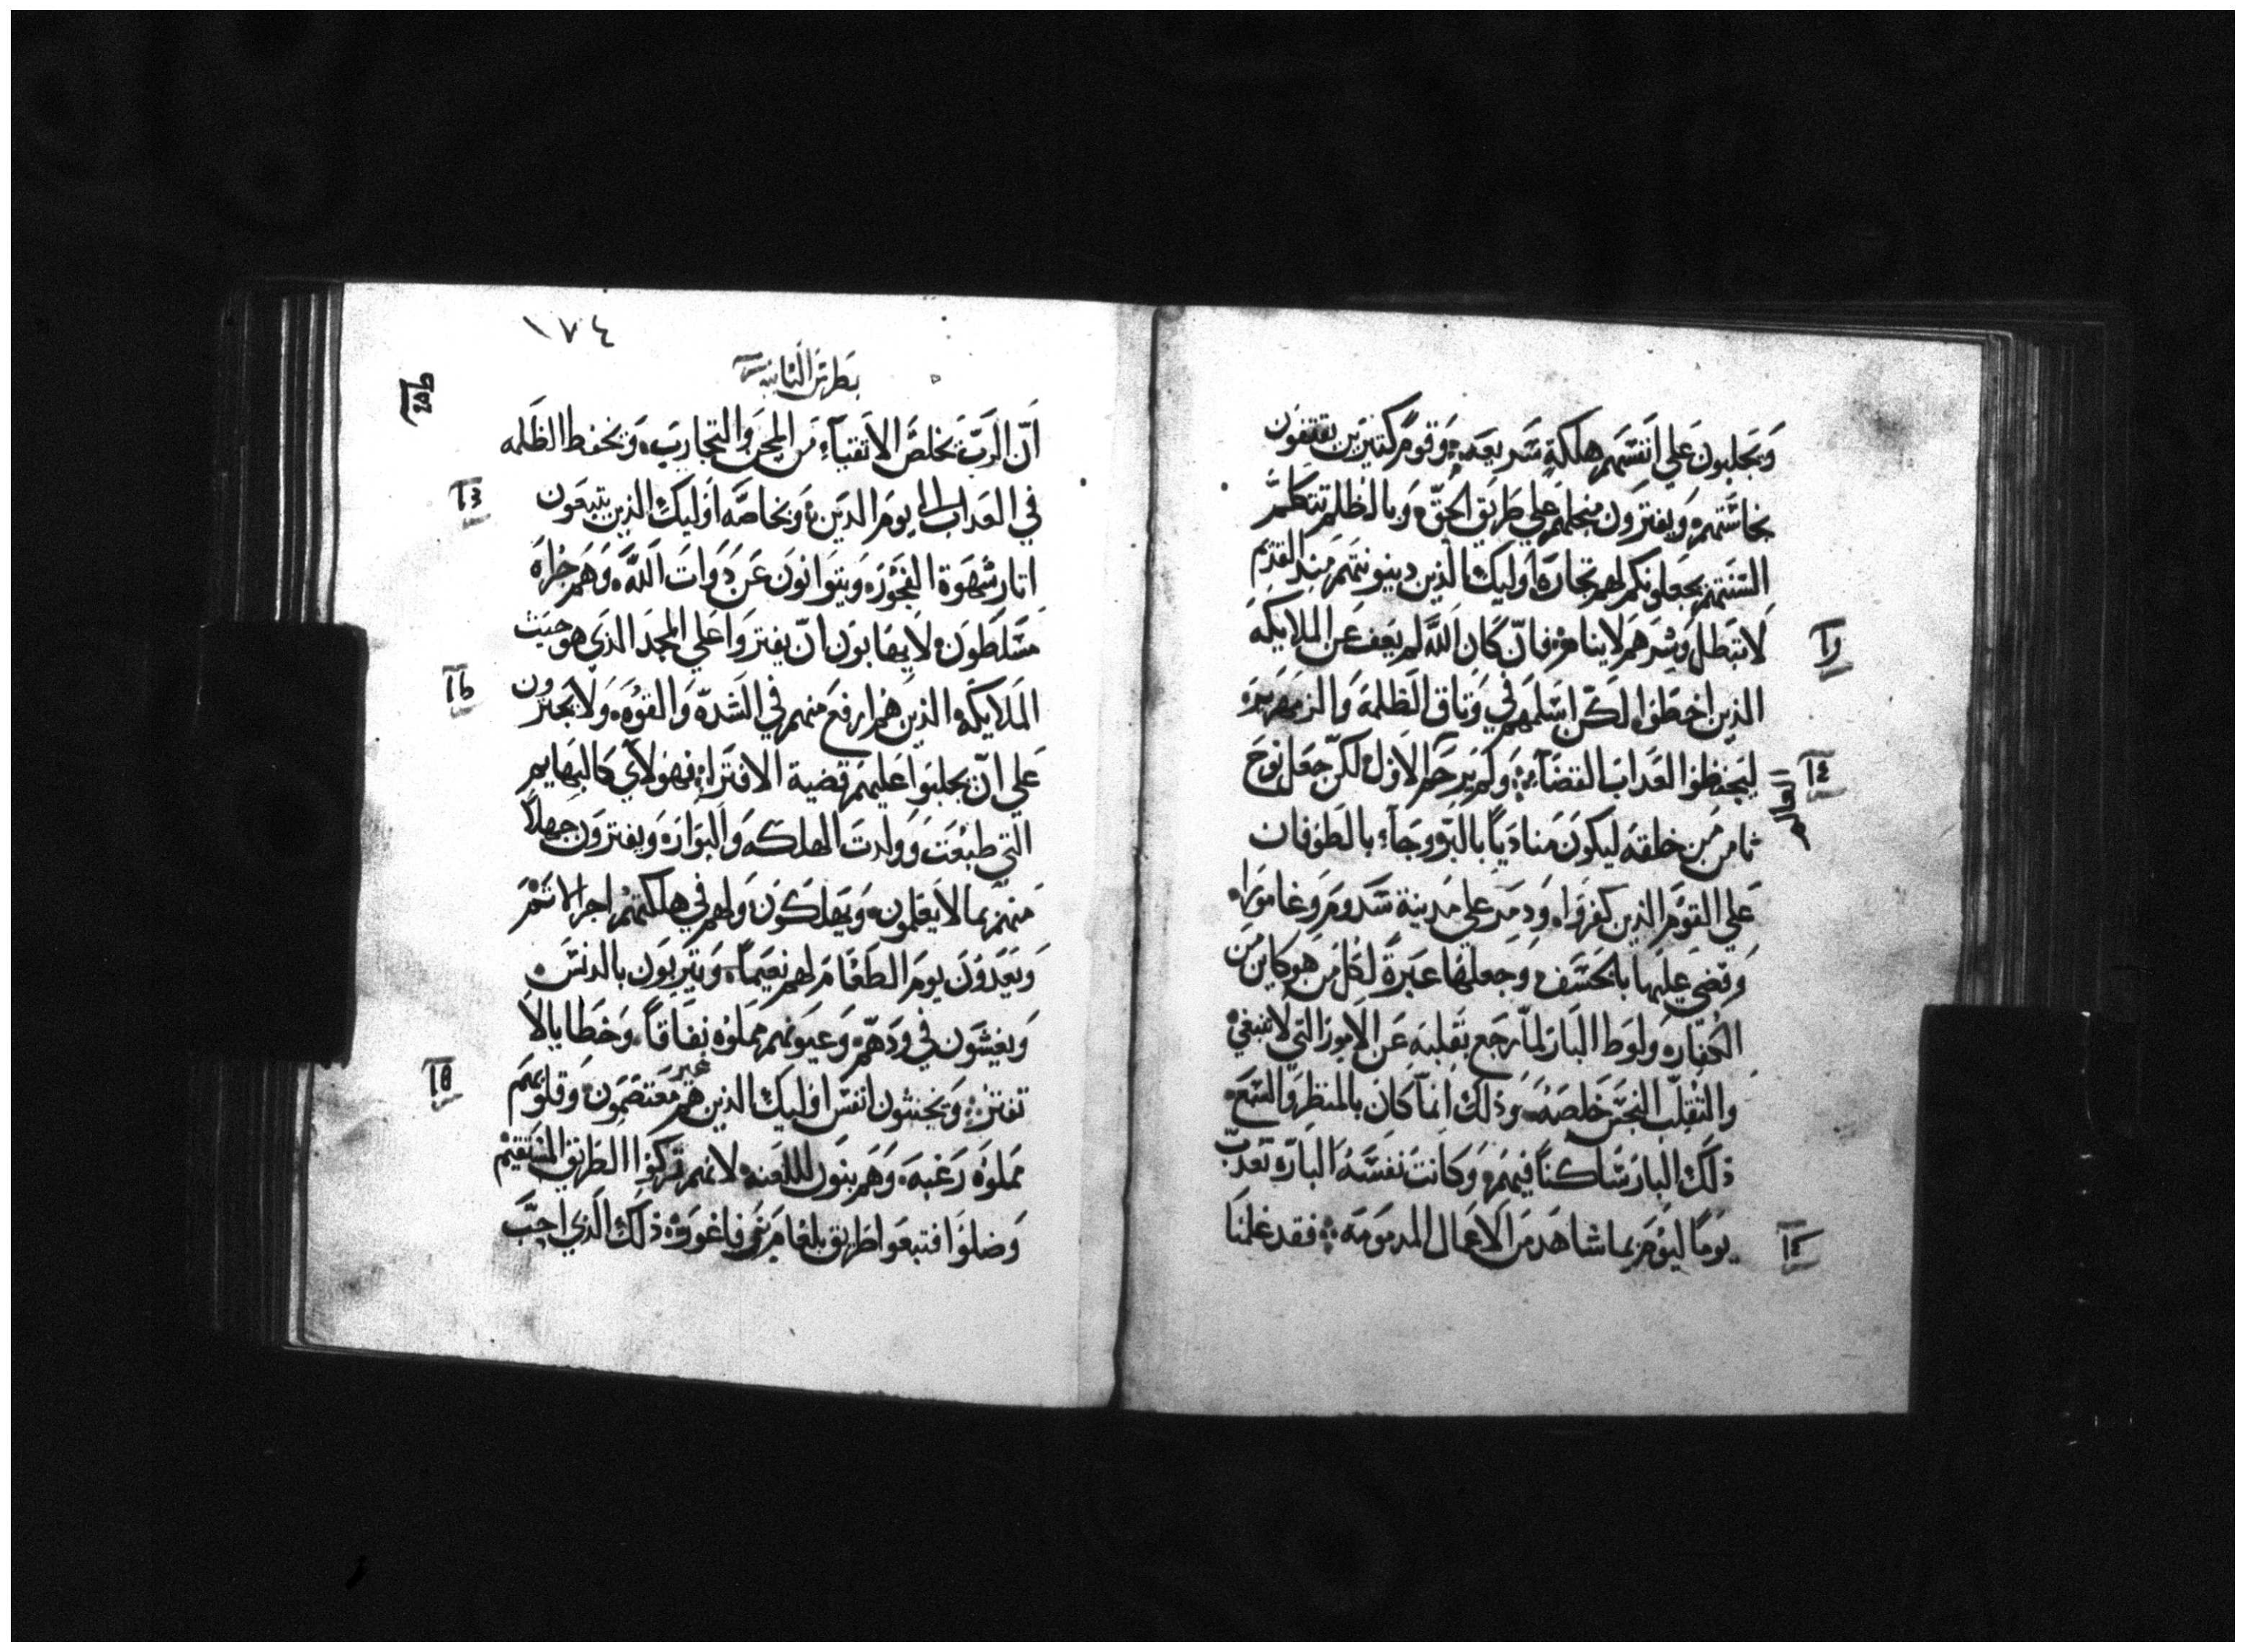 وَيجلبون علي انفسهم هلكة سريعه؛ وقوم كتيرين يقتفون
نجاستهم ويفترون منجلهم علي طريق الحق؛ وبالظلم تتكلم
السنتهم يجعلونكم لهم تجاره اوليك الذين دينونتهم منذ القديم
لا تبطل وشرهم لا ينام؛ فان كان الله لم يعف عن الملايكه
الذين اخطوا لكن اسلمهم في وتاق الظلمه والزمهرير
ليحفظوا العداب القضاء؛ ولم يرحم الاول لكن جعل نوح
العالم
ثامن من خلقه ليكون مناديا بالبر وجاء بالطوفان
علي القوم الذين كفروا؛ ودمد علي مدينة سدوم وغامورا
وقضي عليها بالخسف وجعلها عبرة لكل من هو كاين من
الكفار؛ ولوط البار لما رجع بقلبه عن الامور التي لا تنبغي
والتقلب النجس خلصه؛ وذلك انما كان بالمنظر والسمع
ذلك البار ساكنا فيهم؛ وكانت نفسه البارة تعدب
يوما ليوم بما شاهد من الاعمال المدمومه؛ فقد علمنا
١٧٤
بطرس الثانيه
ان الرب يخلص الاتقياء من المحن والتجارب؛ ويحفظ الظلمه
في العداب الي يوم الدين؛ وبخاصه اوليك الذين يتبعون
اتار شهوة الفجور؛ ويتوانون عن دوات الله وهم جراه
مسلطون لا يهابون ان يفتروا علي المجد الذي هو حيث
الملايكه الذين هم ارفع منهم في الشده والقوه؛ ولا يجترون
علي ان يجلبوا عليهم قضية الافتراء؛ فهولاي كالبهايم
التي طبعت وولدت الهلكه والبوار؛ ويفترون جهلا
منهم بما لا يعلمون؛ ويهلكون ولهم في هلكتهم اجر الاتم
ويعدون يوم الطعام لهم نعيما؛ ويتربون بالدنس
ويغشون في ودهم؛ وعيونهم مملوه نفاقا؛ وخطايا لا
تفتر؛ ويخنثون انفس اوليك الذين هم غير معتصمون؛ وقلوبهم
مملوه رغبه؛ وهم بنون لللعنه لانهم تركوا الطريق المستقيم
وضلوا فتبعوا طريق بلعام بن فاغور؛ ذلك الذي احب